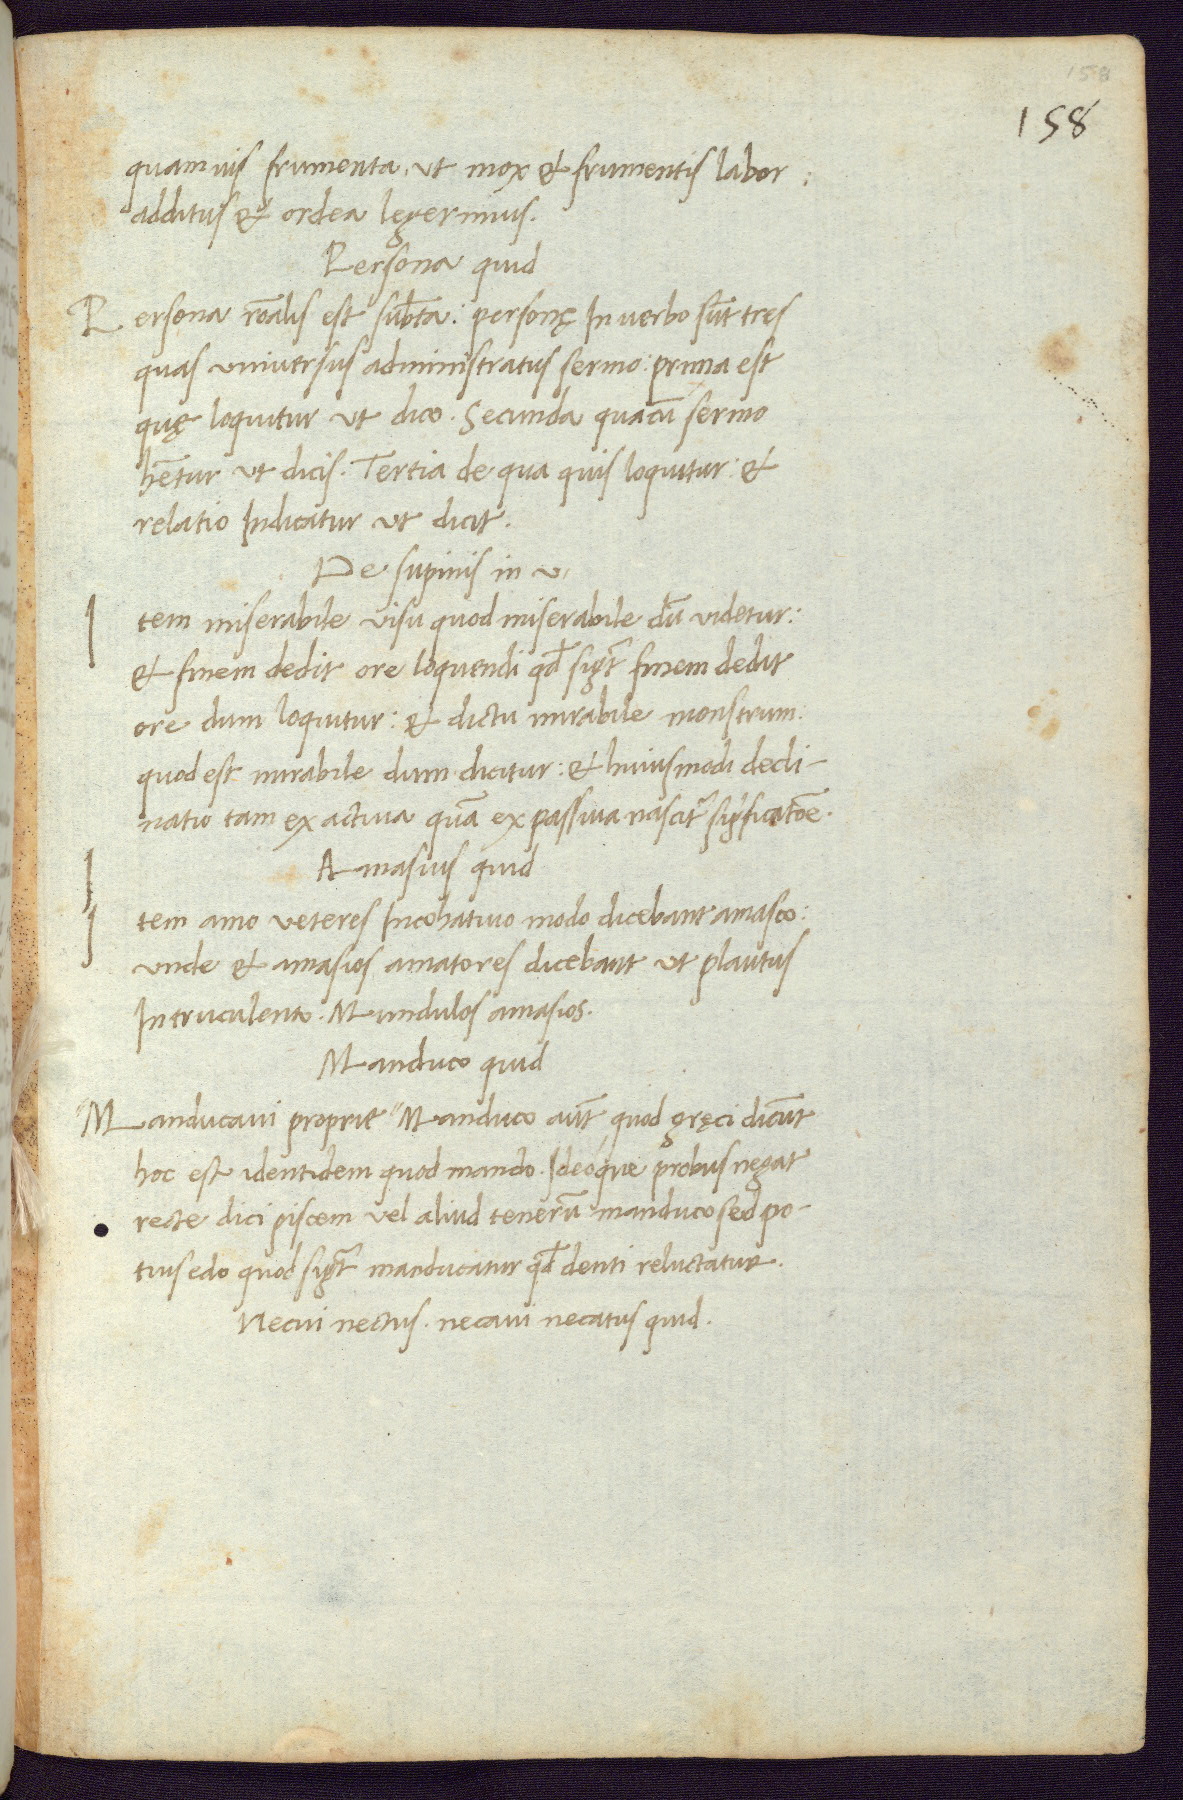 158
158
quamuis frumenta, ut mox & frumentis labor:
additus & ordea legerimus.
Persona quid
Persona rõalis est subͣta: personę In uerbo sūt tres
quas uniuersus administratus sermo: prima est
quę loquitur ut dico. Secunda quacū sermo
hẽtur ut dicis. Tertia de qua quis loquitur: &
relatio Indicatur ut dicit.
De supinis in u.
Item miserabile visu quod miserabile dū videtur:
& finem dedit ore loquendi qd̄ sigt̄ finem dedit
ore dum loquitur: & dictu mirabile monstrum:
quod est mirabile dum dicitur: & huiusmodi decli-
natio tam ex actiua quã ex passiua nascit᷑ significatõe.
Amasius quid
Item amo veteres Incohatiuo modo dicebant amasco:
unde & amasios amatores dicebant ut plautus
In truculento. Mundulos amasios.
Manduco quid
Manducaui proprie "Manduco aiūt, quod gręci dicūt
hoc est identidem quod mando. Ideoque probus negat
recte dici piscem vel aliud tenerū manduco sed po-
tius edo quod sigt̄ manducatur qd̄ denti reluctatur.
Necui nectus. necaui necatus quid.